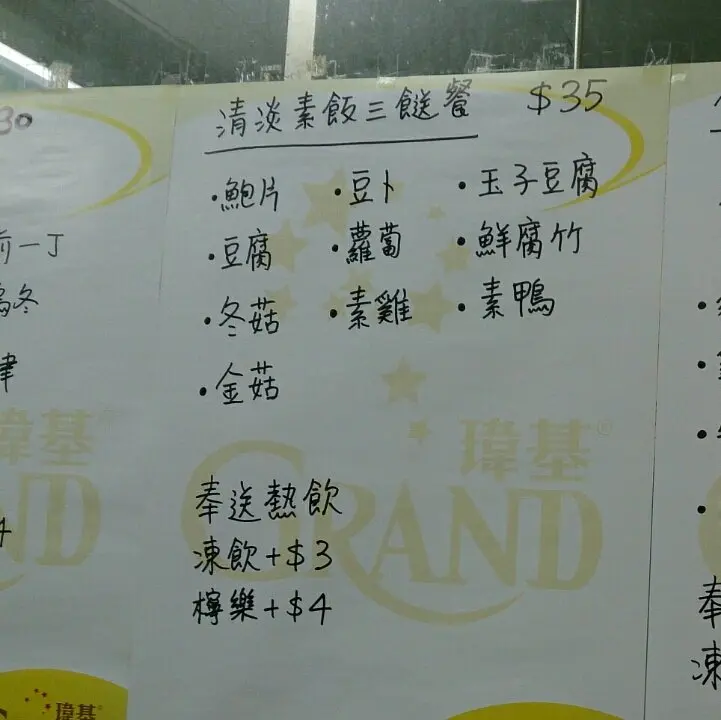 30
清淡素飯三餸餐 $35
·鮑片 ·豆卜 ·玉子豆腐
·豆腐 ·蘿蔔 ·鮮腐竹
·冬菇 ·素雞 ·素鴨
·金菇
前一丁
冬
奉送熱飲
凍飲+$3
檸樂+$4
瑋基®
GRAND
瑋基®
ND
4
瑋基®
奉
凍